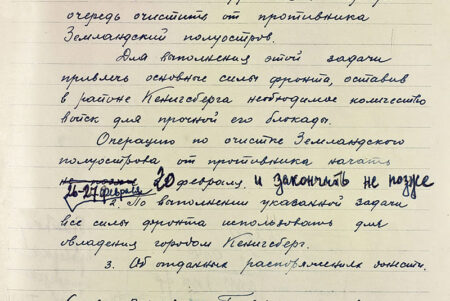 очередь очистить от противника
Земландский полуостров.
Для выполнения этой задачи
привлечь основные силы фронта, оставив
в районе Кенигсберга необходимое количество
войск для прочной его блокады.
Операцию по очистке Земландского
полуострова от противника начать
не позже 20 февраля. и закончить не позже
26-27 февраля
2. По выполнении указанной задачи
все силы фронта использовать для
овладения городом Кенигсберг.
3. Об отданных распоряжениях донести.